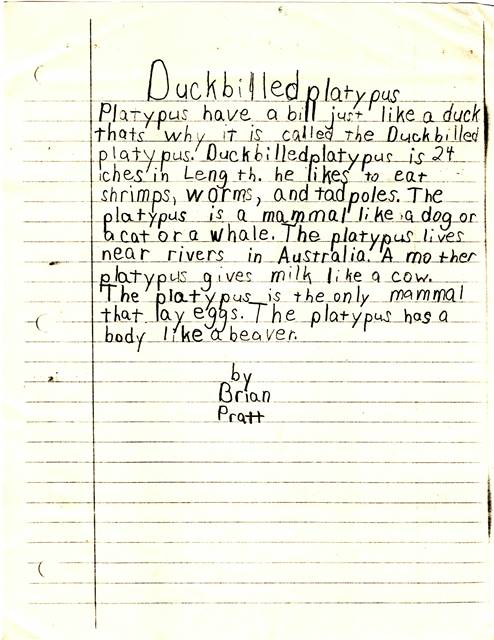 Duckbilled platypus
Platypus have a bill just like a duck
thats why it is called the Duckbilled
platypus. Duckbilledplatypus is 24
iches in Leng th. he likes to eat
shrimps, worms, and tadpoles. The
platypus is a mammal like a dog or
a cat or a whale. The platypus lives
near rivers in Australia. A mother
platypus gives milk like a cow.
The platypus is the only mammal
that lay eggs. The platypus has a
body like a beaver.
by
Brian
Pratt